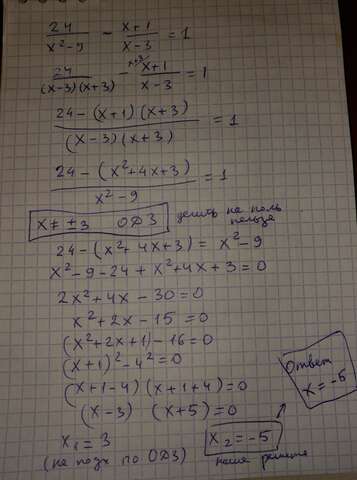 24/(x²-9) - (x+1)/(x-3) = 1
24/((x-3)(x+3)) - ˣ⁺³(x+1)/(x-3) = 1
(24-(x+1)(x+3))/((x-3)(x+3)) = 1
(24-(x²+4x+3))/(x²-9) = 1
x≠±3 ОДЗ делить на ноль нельзя
24-(x²+4x+3) = x²-9
x²-9-24+x²+4x+3=0
2x²+4x-30=0
x²+2x-15=0
(x²+2x+1)-16=0
(x+1)²-4²=0
(x+1-4)(x+1+4)=0
(x-3) (x+5)=0
x₁=3 x₂=-5
(не подх по ОДЗ) наше решение
Ответ
x=-5